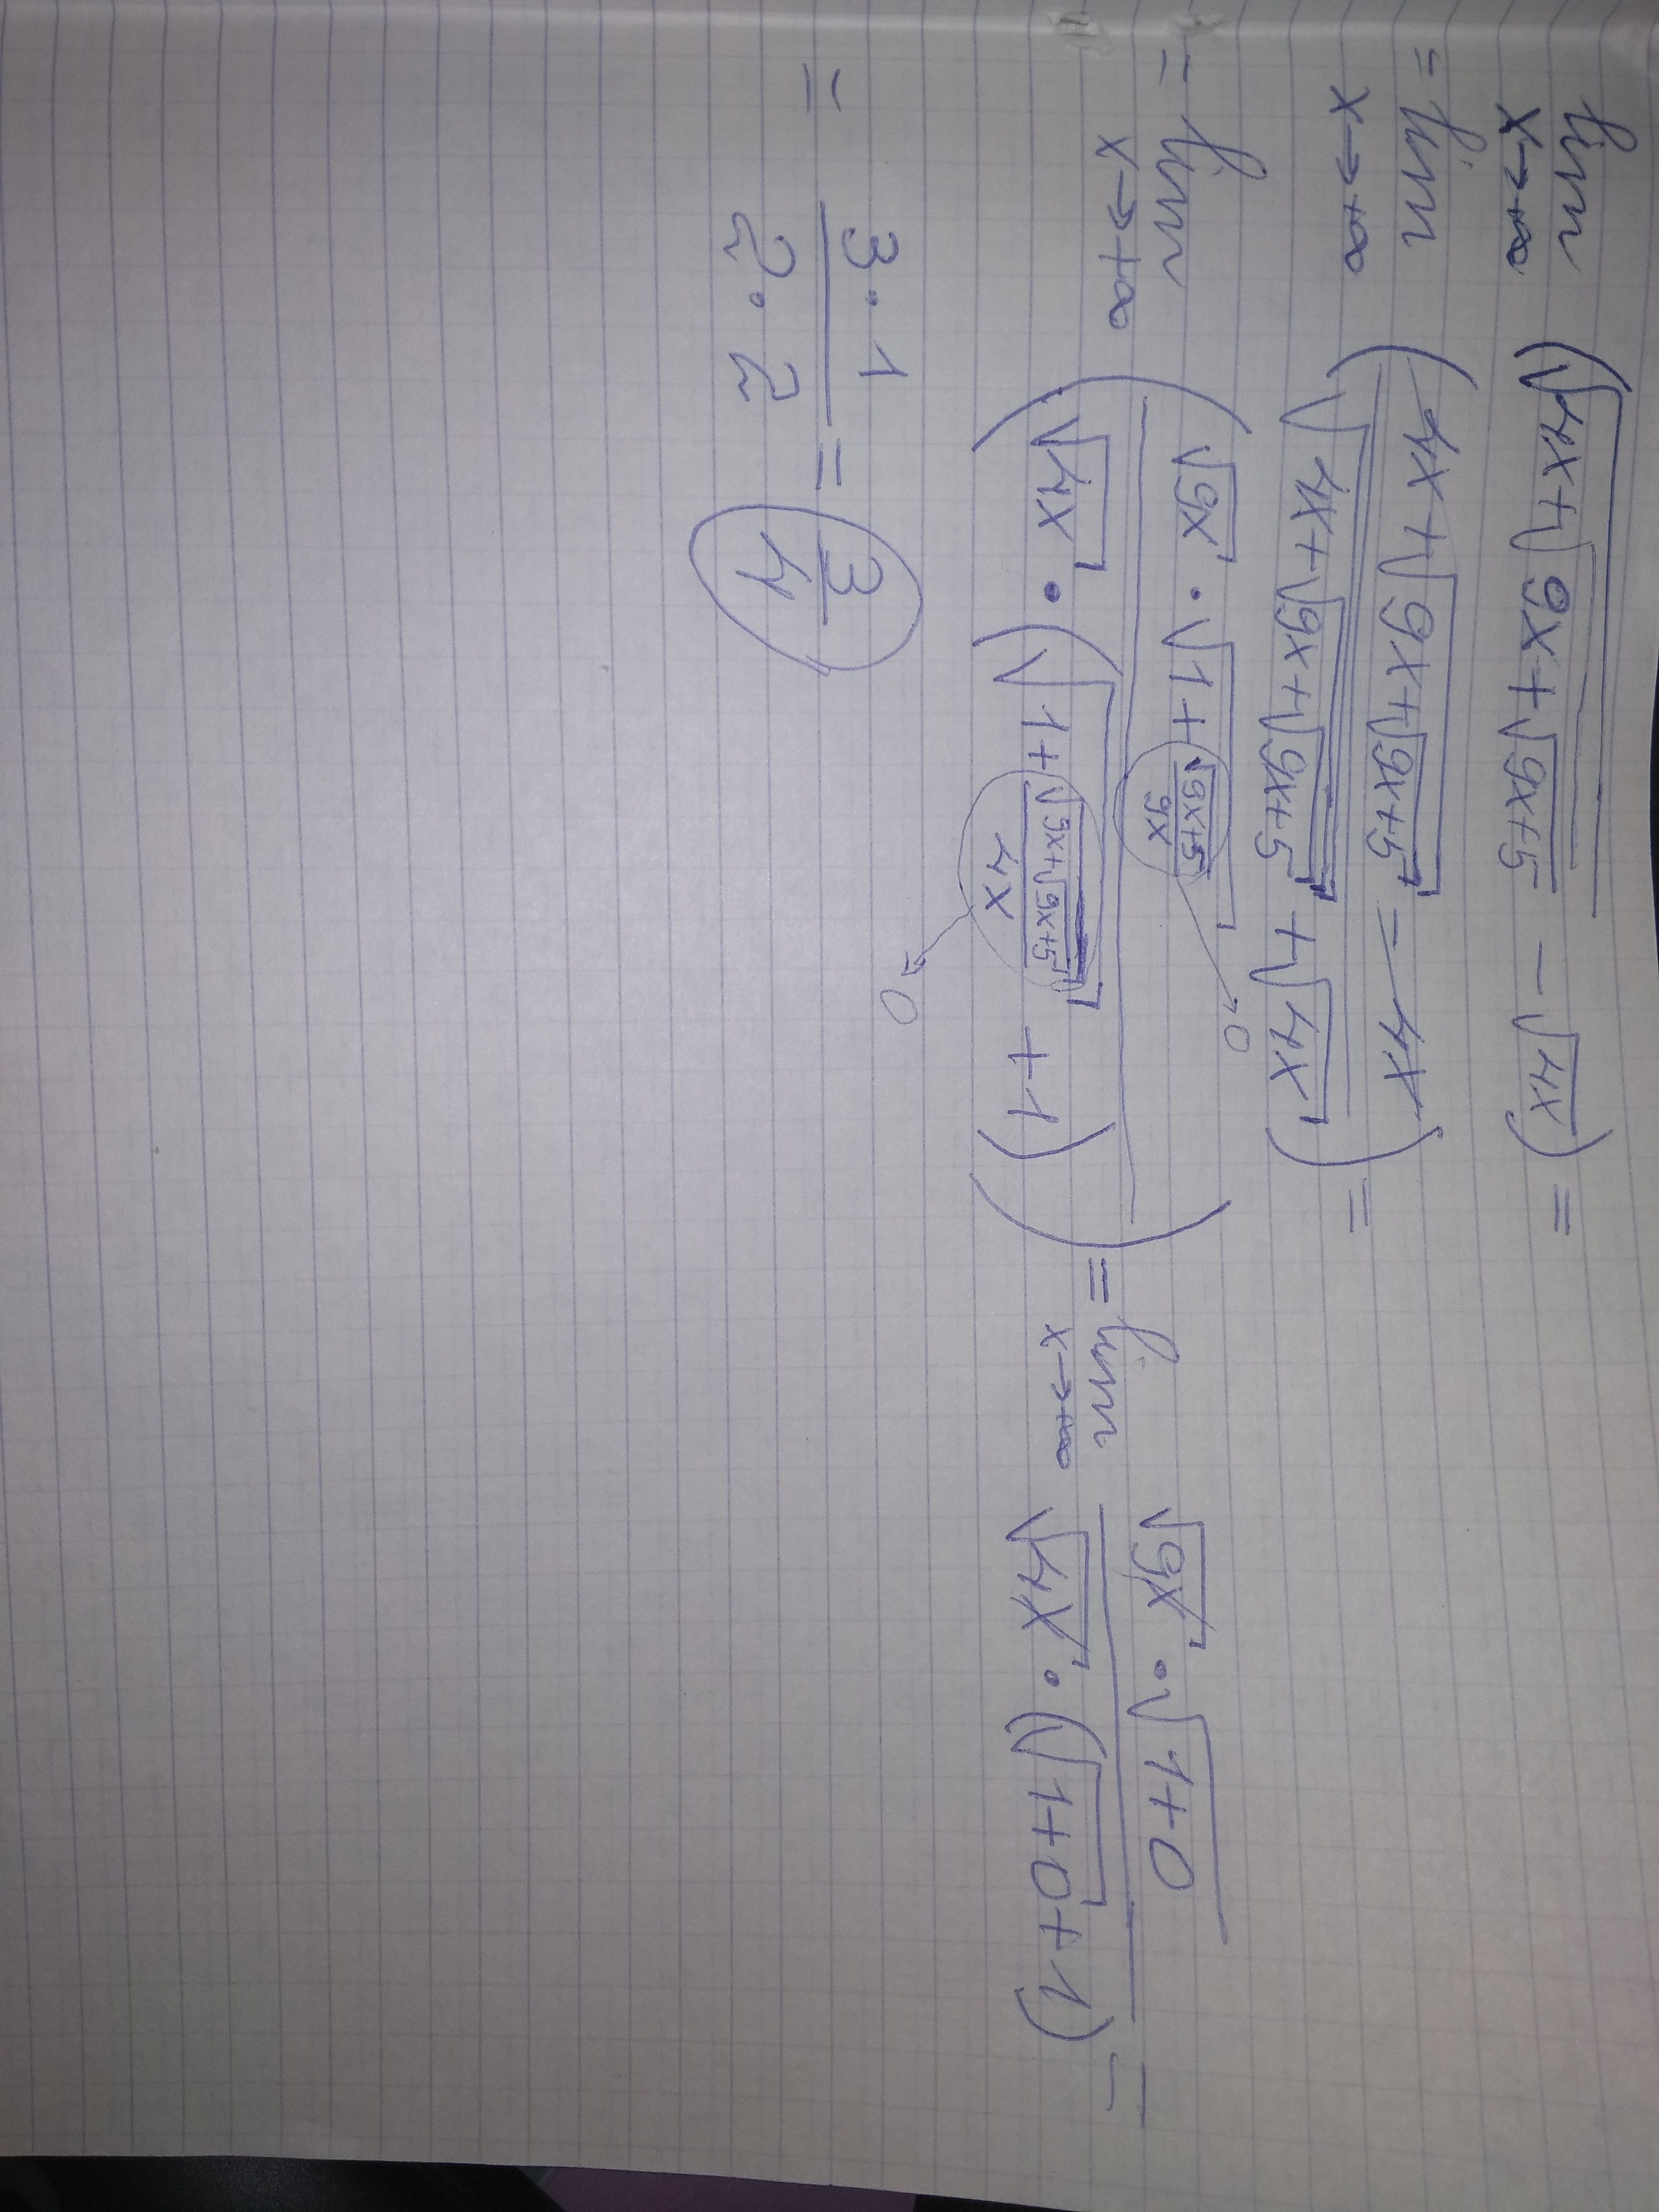 lim x→+∞ (√(4x+√(9x+√(9x+5))) − √(4x)) =
= lim x→+∞ ((4x+√(9x+√(9x+5)) − 4x) / (√(4x+√(9x+√(9x+5))) + √(4x))) =
= lim x→+∞ ((√(9x) · √(1+√(9x+5)/(9x))) / (√(4x) · (√(1+√(9x+√(9x+5))/(4x)) + 1))) = lim x→+∞ (√(9x) · √(1+0)) / (√(4x) · (√(1+0)+1)) =
→ 0
→ 0
= (3·1)/(2·2) = 3/4